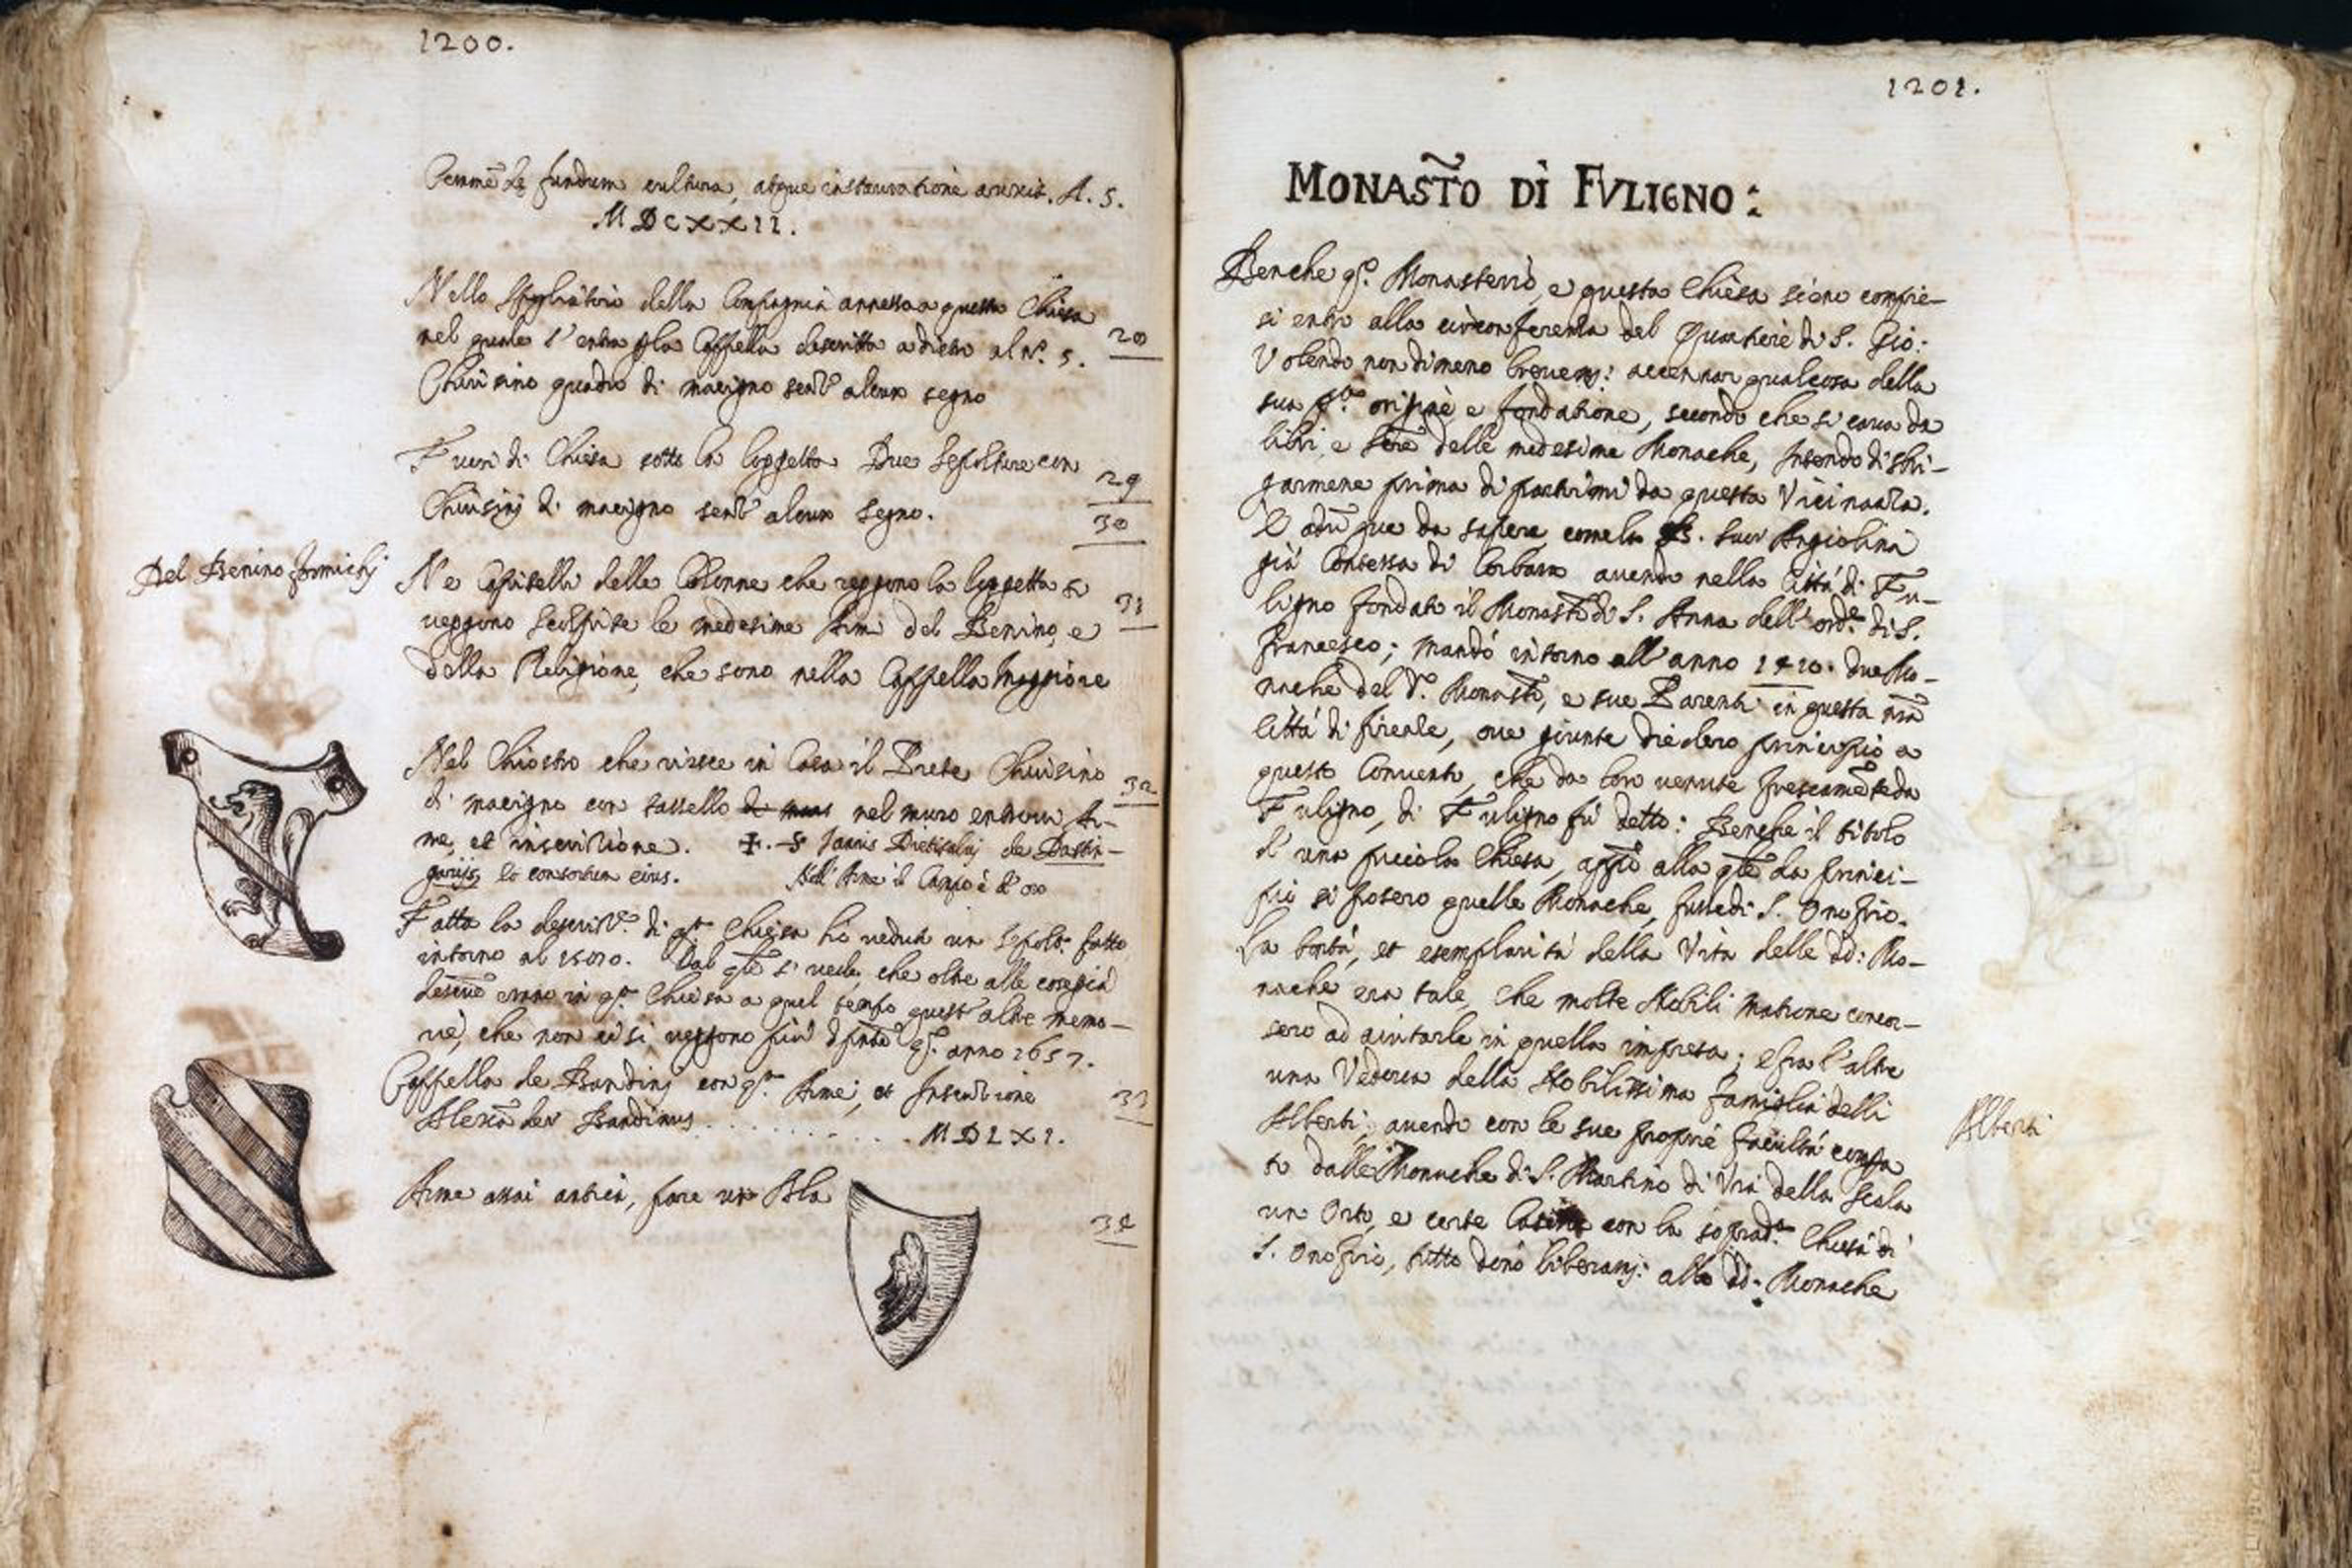 1200.
fundum cultura, atque instauratione auxit. A. S.
MDCXXII.
Nello Spogliatoio della Compagnia annessa a questa Chiesa
nel quale s'entra p la Cappella descritta adietro al N.º 5.
20
Chiusino quadro di macigno senz' alcun segno
Fuori di Chiesa sotto la loggetta Due Sepolture con
29
Chiusinj di macigno senz' alcun segno.
30
Del Benino
Ne Capitelli delle Colonne che reggono la loggetta si
31
veggono scolpite le medesime Armi del Benino, e
della Religione, che sono nella Cappella Maggiore
Nel Chiostro che riesce in Casa il Prete Chiusino
32
di macigno con tassello nel muro entrovi Ar-
me, et inscrizione. ✝. S Dietisalvj de
et consortum eius. Nell' Arme il Campo è d' oro
Fatta la descriz.e di q.ta Chiesa hò veduto un fatto
intorno al Dal qle si vede, che oltre alle cose già
erano in q.ta Chiesa a quel tempo quest' altre memo-
rie, che non ci si veggono più q.º anno 1657.
Cappella de Bandinj con q.ta Arme, et Inscrizione
33
Bandinus . . . . . . . . . . . MDLXI.
Arme assai antica, pare un Ala
34
1201.
MONAST̃O DI FVLIGNO:
Benche q.º Monasterio, e questa Chiesa siano compre-
si entro alla circonferenza del Quartiere di S. Gio:
Volendo nondimeno brevem: accennar qualcosa della
sua origine e fondatione, secondo che si cava da
libri, e delle medesime Monache, Intendo di sbri-
garmene prima di partirmi da questa Vicinanza.
E adũque da sapere come la B. Suor Angiolina
già Contessa di Corbara avendo nella Città di Fu-
ligno fondato il Monast̃º di S. Anna dell' ord.e di S.
Francesco; mandò intorno all' anno 1420. due Mo-
nache del d.º Monast̃º, e sue Parenti in questa nrã
Città di Firenze, ove giunte diedero principio a
questo Convento, che da loro venute frescamẽte da
Fuligno, di Fuligno fù detto: Benche il titolo
d' una piccola Chiesa, app̃o alla qle da princi-
pio si posero quelle Monache, fusse di S. Onofrio.
La bontà, et esemplarità della Vita delle dd: Mo-
nache era tale, che molte Nobili Matrone concor-
sero ad aiutarle in quella impresa; e fra l'altre
una Vedova della Nobilissima famiglia delli
Alberti, avendo con le sue proprie facultà compra
Alberti
to dalle Monache di S. Martino di Via della Scala
un Orto, e certe con la soprad.ta Chiesa di
S. Onofrio, tutto donò liberam: alle dd: Monache